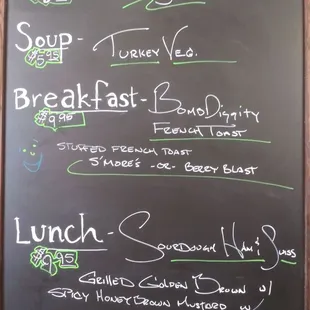 Soup - Turkey Veg.
$5.95
Breakfast - BombDiggity
$9.95 French Toast
Stuffed French Toast
S'mores -or- Berry Blast
Lunch - Sourdough Ham & Swiss
$9.95
Grilled Golden Brown w/
Spicy Honey Brown Mustard w/